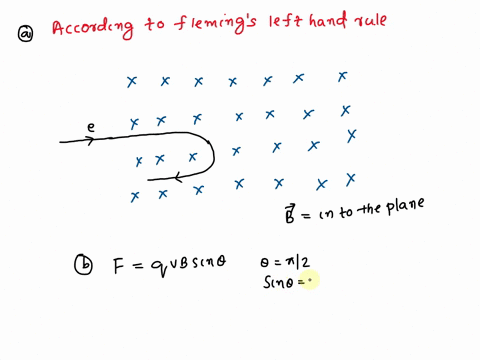 ⓐ According to fleming's left hand rule
x x x x x x x
e x x x x x x x
x x x x x x x
x x x x x x x
B⃗ = in to the plane
ⓑ F = qvBsinθ θ = π/2
sinθ =